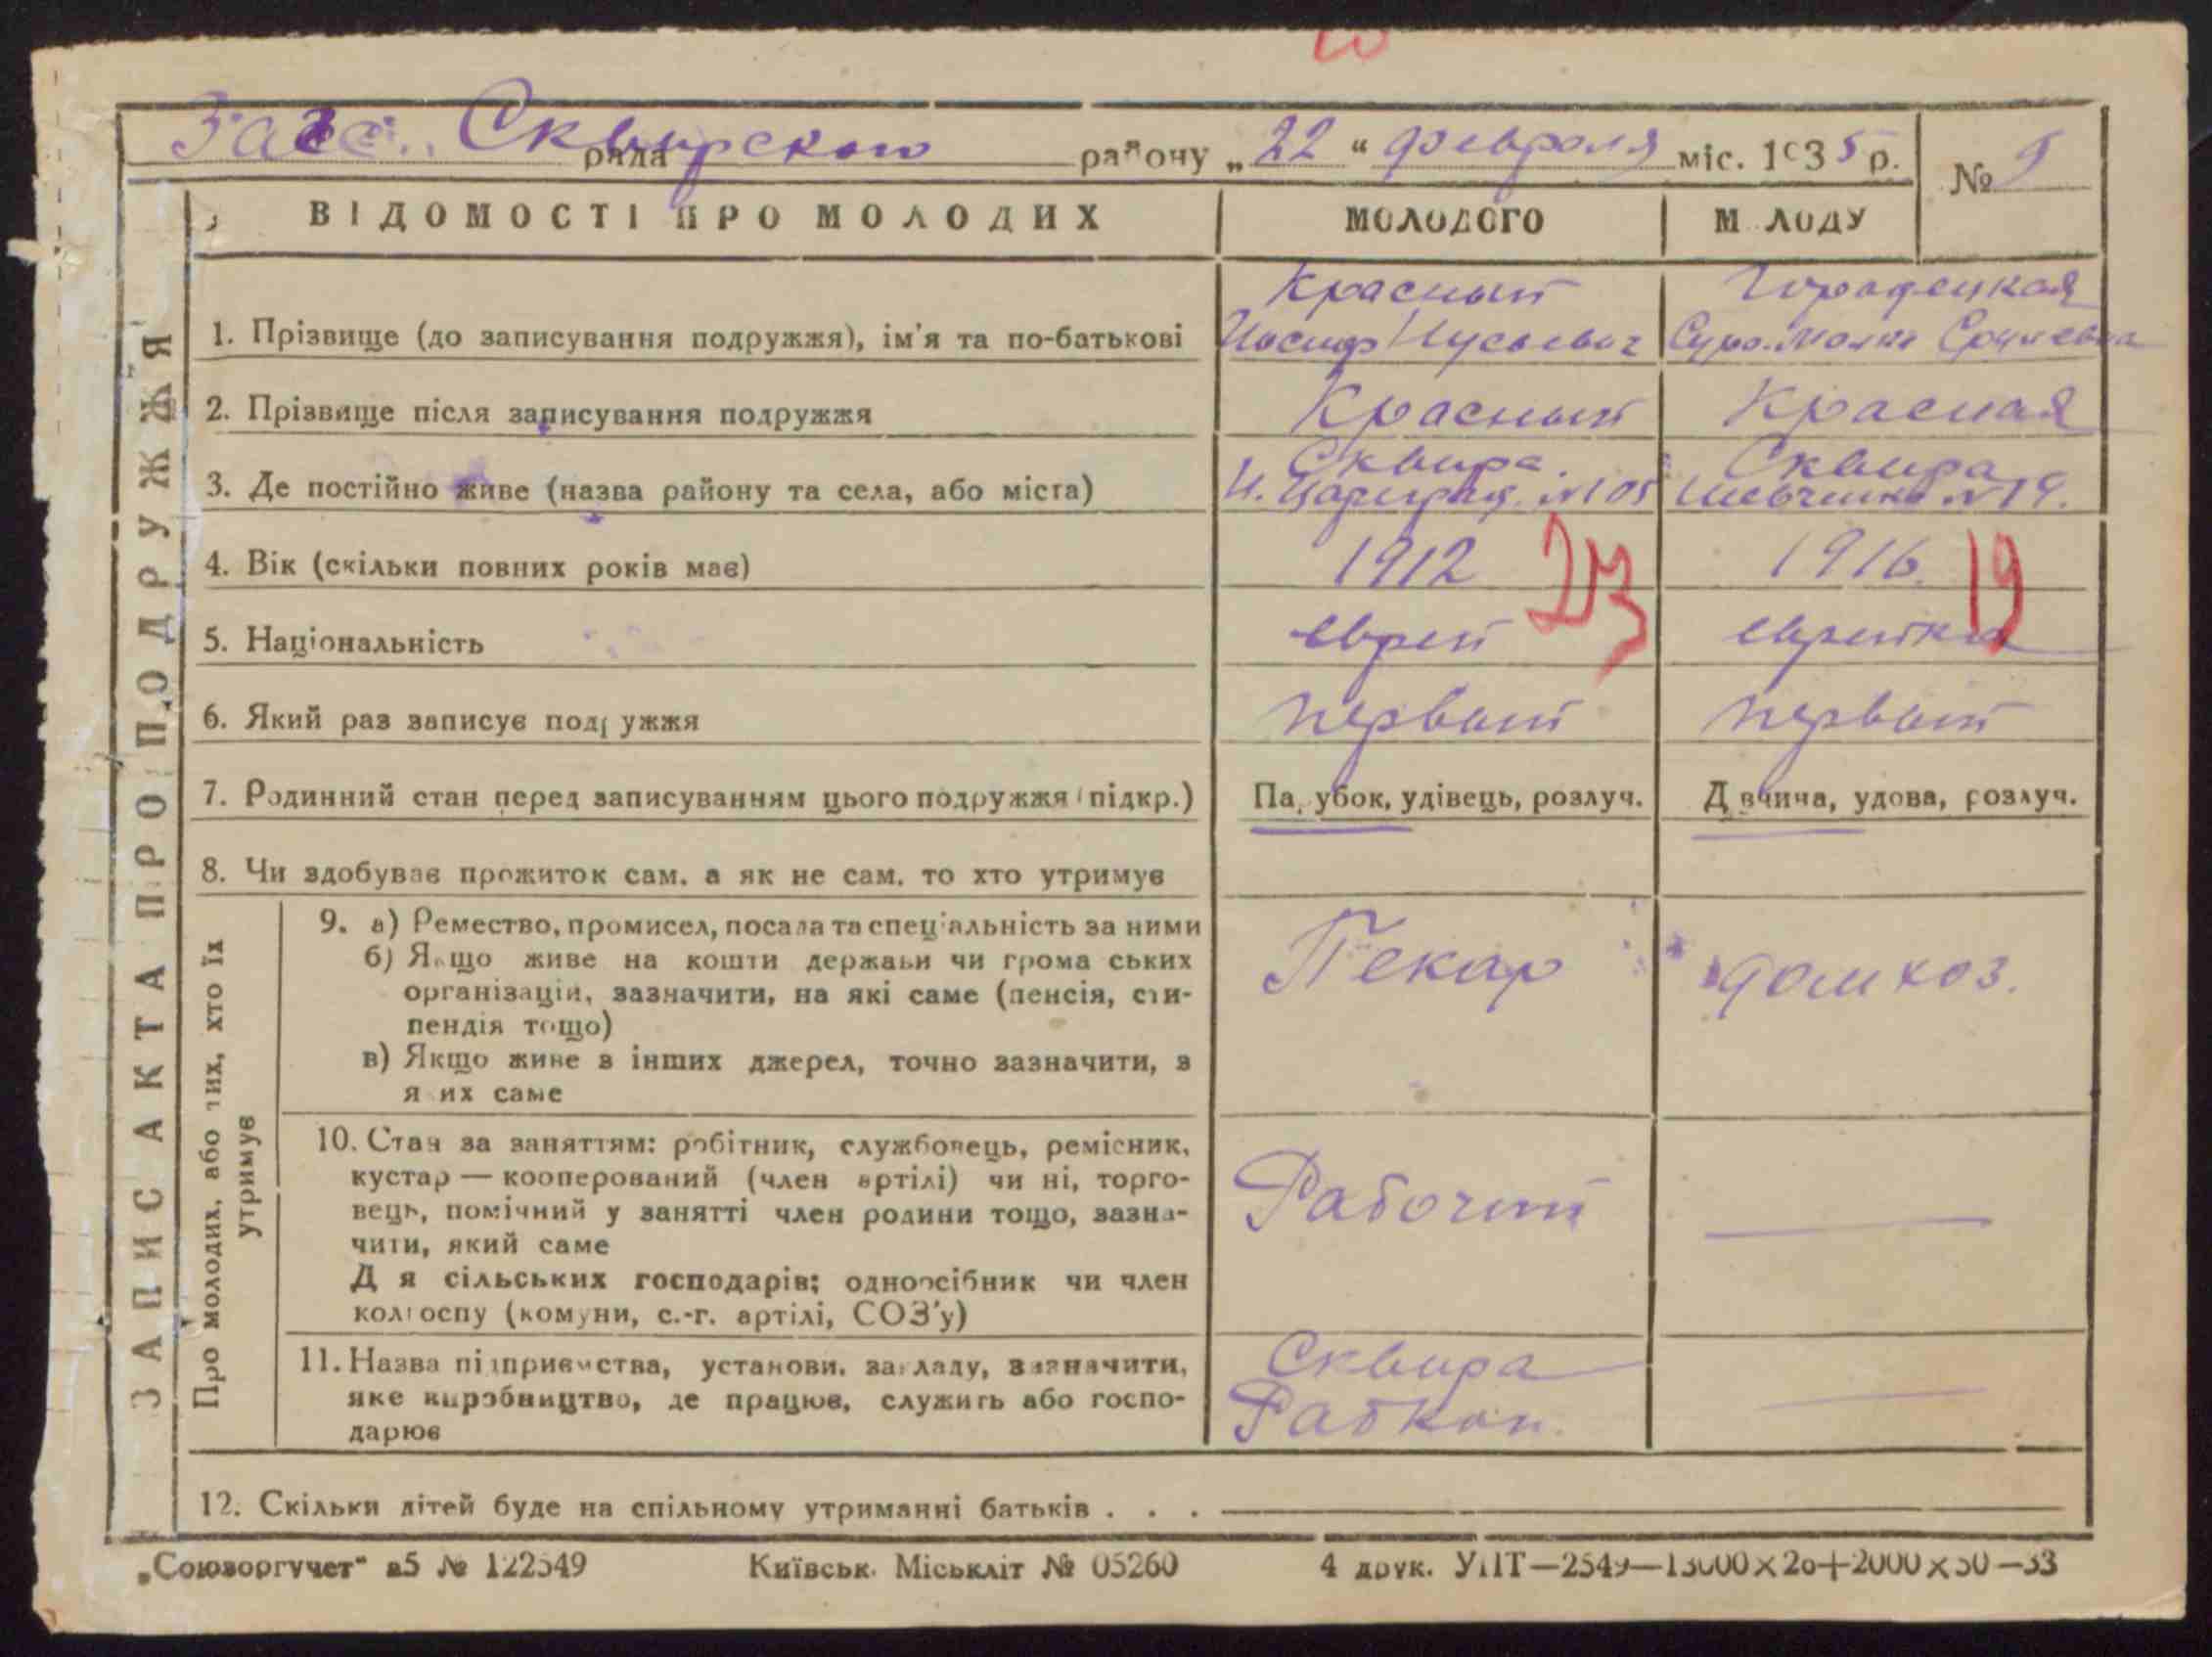 Загс. Сквирского
рада району „22“ февраля міс. 1935 р. № 9
ВІДОМОСТІ ПРО МОЛОДИХ МОЛОДОГО МОЛОДУ
ЗАПИС АКТА ПРО ПОДРУЖЖЯ
Красный
1. Прізвище (до записування подружжя), ім'я та по-батькові Иосиф Нусьевич
Городецкая
2. Прізвище після записування подружжя Красный Красная
3. Де постійно живе (назва району та села, або міста) Сквира. Сквира
№ 105 Шевченко № 19.
4. Вік (скільки повних років має) 1912 23 1916. 19
5. Національність еврей еврейка
6. Який раз записує подружжя первый первый
7. Родинний стан перед записуванням цього подружжя (підкр.) Парубок, удівець, розлуч. Дівчина, удова, розлуч.
8. Чи здобуває прожиток сам, а як не сам, то хто утримує
Про молодих, або тих, хто їх
утримує
9. а) Ремество, промисел, посада та спеціальність за ними
б) Якщо живе на кошти держави чи громадських
організацій, зазначити, на які саме (пенсія, сти-
пендія тощо)
в) Якщо живе з інших джерел, точно зазначити, з
яких саме
Пекар домхоз.
10. Стан за заняттям: робітник, службовець, ремісник,
кустар — кооперований (член артілі) чи ні, торго-
вець, помічний у занятті член родини тощо, зазна-
чити, який саме
Для сільських господарів; одноосібник чи член
колгоспу (комуни, с.-г. артілі, СОЗ'у)
Рабочий
11. Назва підприємства, установи, закладу, зазначити,
яке виробництво, де працює, служить або госпо-
дарює
Сквира
Рабкоп.
12. Скільки дітей буде на спільному утриманні батьків . . .
„Союзоргучет“ а5 № 122549 Київськ. Міськліт № 05260 4 друк. УПТ—2549—13000×20+2000×50—33